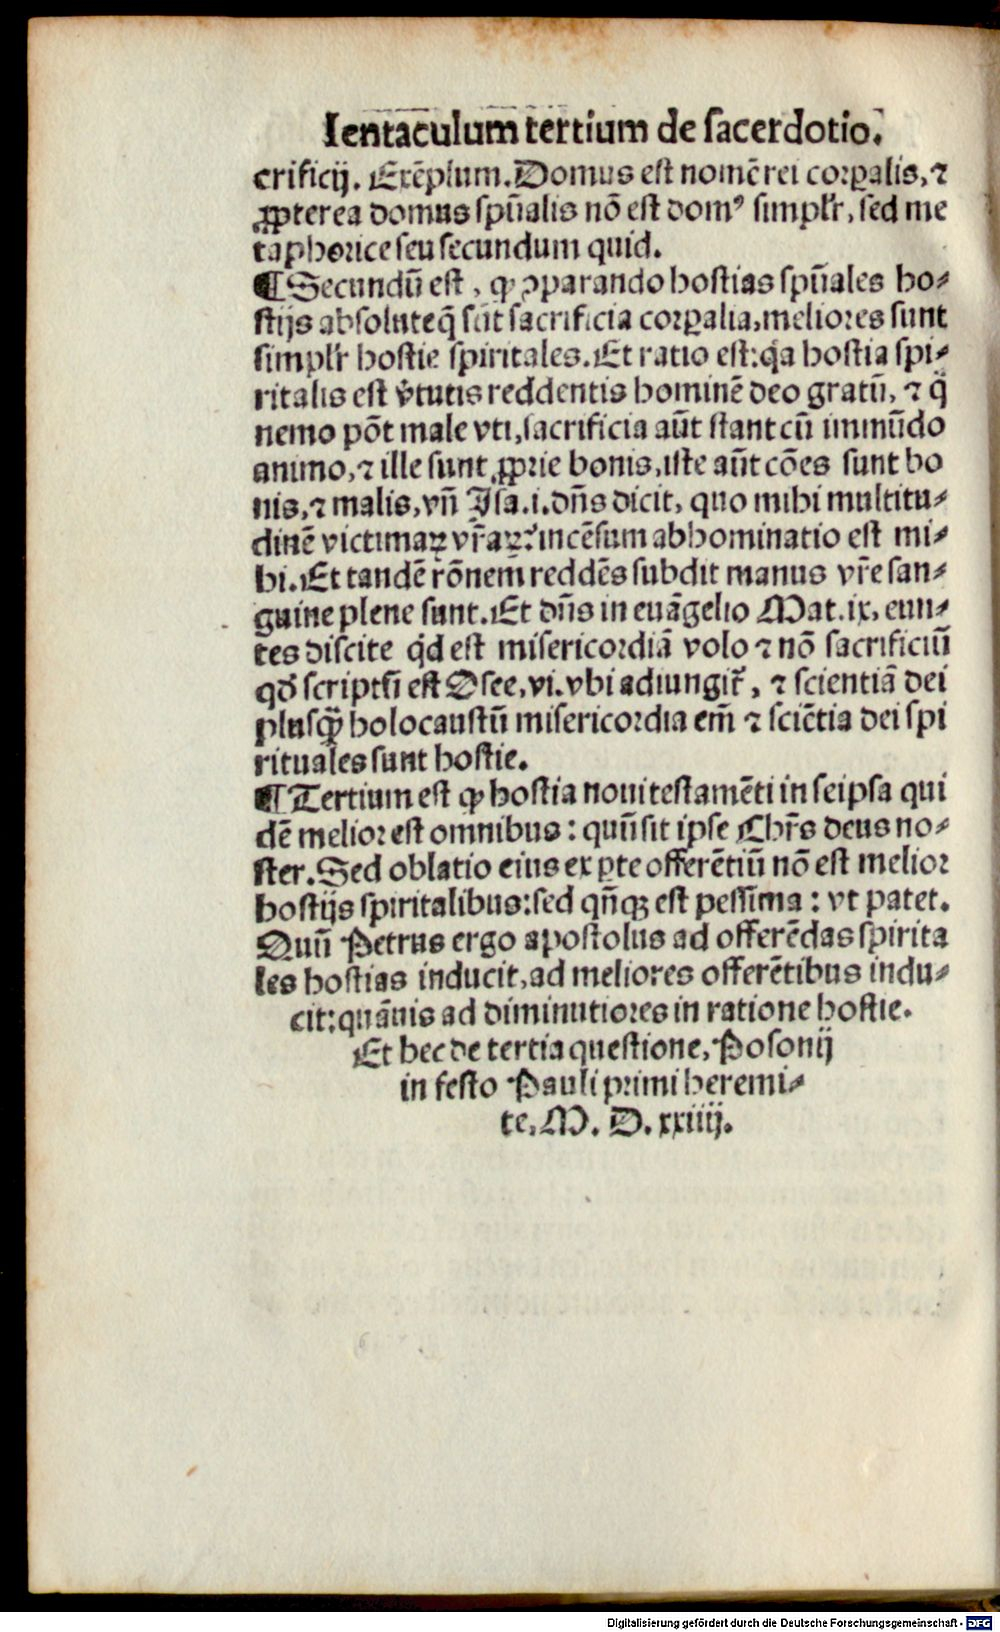 Ientaculum tertium de sacerdotio.
crificij. Exẽplum. Domus est nomẽ rei corꝑalis, ⁊
ꝓpterea domus spũalis nõ est domꝰ simplr̃, sed me
taphorice seu secundum quid.
¶ Secundũ est, ꝙ ꝯparando hostias spũales ho⸗
stijs absolute q̃ sũt sacrificia corꝑalia, meliores sunt
simplr̃ hostie spiritales. Et ratio est: qa hostia spi⸗
ritalis est v̾tutis reddentis hominẽ deo gratũ, ⁊ q̃
nemo põt male vti, sacrificia aũt stant cũ immũdo
animo, ⁊ ille sunt ꝓprie bonis, iste aũt cões sunt bo
nis, ⁊ malis, vñ Isa. i. dñs dicit, quo mihi multitu⸗
dinẽ victimaꝝ vr̃aꝝ? incẽsum abhominatio est mi⸗
hi. Et tandẽ rõnem reddẽs subdit manus vr̃e san⸗
guine plene sunt. Et dñs in euãgelio Mat. ix, eun⸗
tes discite qd est misericordiã volo ⁊ nõ sacrificiũ
qđ scriptũ est Osee, vi. vbi adiungit̃, ⁊ scientiã dei
plusꝙ̃ holocaustũ misericordia em̃ ⁊ sciẽtia dei spi
rituales sunt hostie.
¶ Tertium est ꝙ hostia noui testamẽti in seipsa qui
dẽ melior est omnibus: quũ sit ipse Chr̃s deus no⸗
ster. Sed oblatio eius ex ꝑte offerẽtiũ nõ est melior
hostijs spiritalibus: sed qñꝙ est pessima: vt patet.
Quũ Petrus ergo apostolus ad offerẽdas spirita
les hostias inducit, ad meliores offerẽtibus indu⸗
cit: quãuis ad diminutiores in ratione hostie.
Et hec de tertia questione, Posonij
in festo Pauli primi heremi⸗
te. M. D. xxiiij.
Digitalisierung gefördert durch die Deutsche Forschungsgemeinschaft - DFG